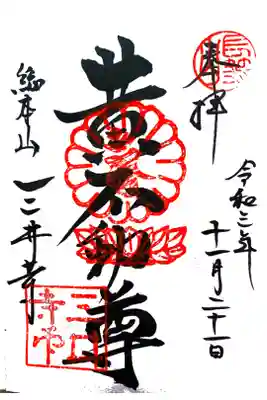 奉拝
令和三年
十一月二十一日
黄不動尊
総本山
三井寺